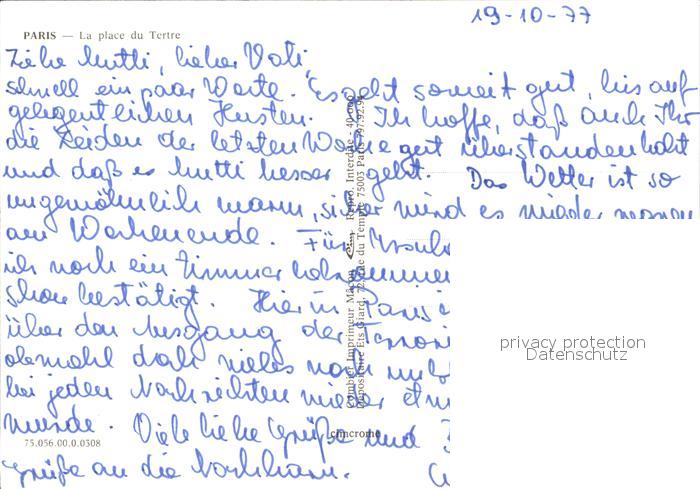 19-10-77
PARIS — La place du Tertre
Liebe Mutti, lieber Vati
schnell ein paar Worte. Es geht soweit gut, bis auf
gelegentlichen Husten. Ich hoffe, daß auch Ihr
die Leiden der letzten Woche gut überstanden habt
und daß es Mutti besser geht. Das Wetter ist so
ungewöhnlich warm, sicher wird es wieder
am Wochenende. Für
ich noch ein Zimmer bekommen
schon bestätigt. Hier in Paris
über den Ausgang der
obwohl doch vieles noch
bei jeden Nachrichten wieder
wurde. Viele liebe Grüße und
Grüße an die Nachbarn.
75.056.00.0.0308
Combier Imprimeur Mâcon Repro. Interdite -
Dépositaire Ets Giard, 72, Rue du Temple 75003 Paris
cimcrome
privacy protection
Datenschutz